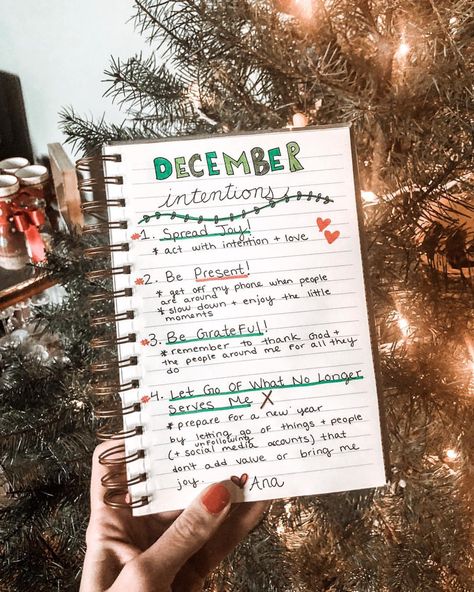 DECEMBER
intentions
*1. Spread Joy!
* act with intention + love
*2. Be Present!
* get off my phone when people
are around
* slow down + enjoy the little
moments
*3. Be Grateful!
* remember to thank God +
the people around me for all they
do
*4. Let Go Of What No Longer
Serves Me X
* prepare for a new year
by letting go of things + people
(+ unfollowing social media accounts) that
don't add value or bring me
joy. ♥Ana